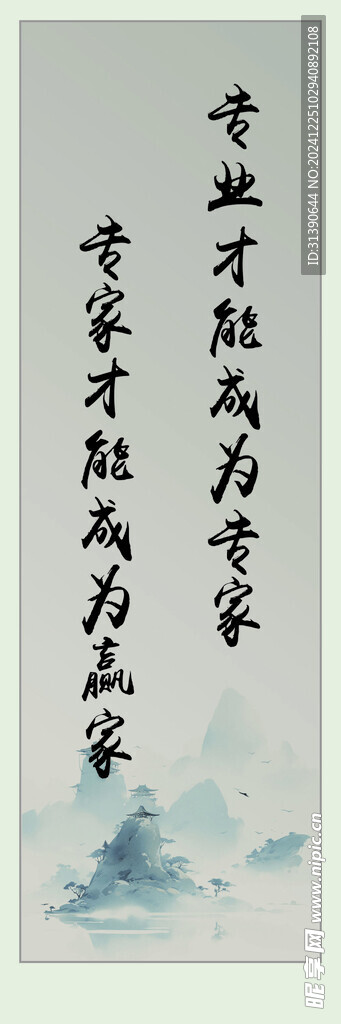 专业才能成为专家
专家才能成为赢家
ID:31390644 NO:20241225102940892108
昵享网 www.nipic.cn